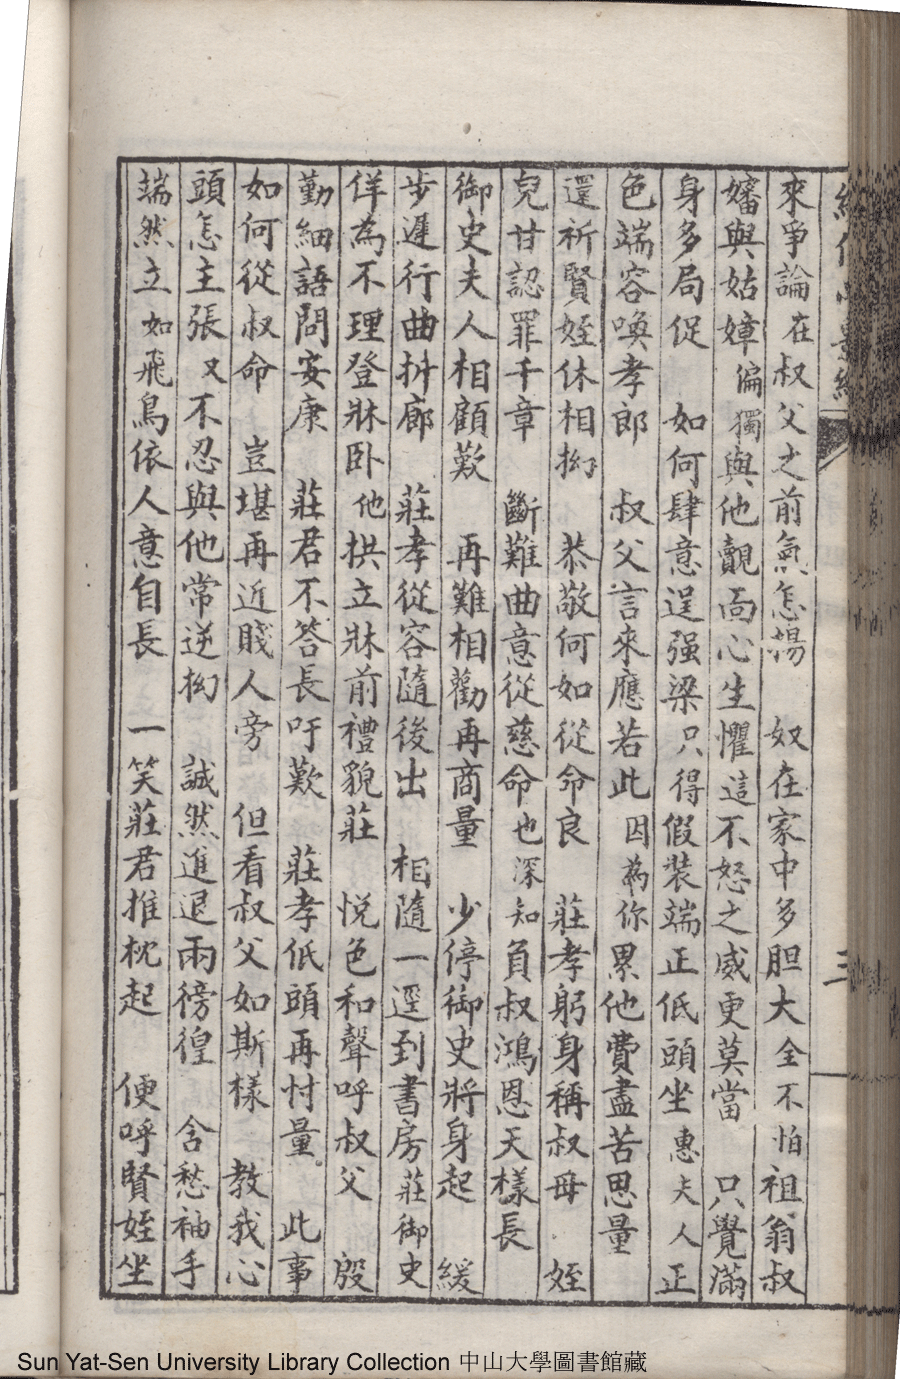 來爭論在叔父之前氣怎揚　奴在家中多胆大全不怕祖翁叔
嬸與姑嫜偏獨與他覿面心生懼這不怒之威更莫當　只覺滿
身多局促　如何肆意逞强梁只得假裝端正低頭坐惠夫人正
色端容喚孝郎　叔父言來應若此因為你累他費盡苦思量
還祈賢姪休相拗　恭敬何如從命良　莊孝躬身稱叔母　姪
兒甘認罪千章　斷難曲意從慈命也深知負叔鴻恩天樣長
御史夫人相顧歎　再難相勸再商量　少停御史將身起　緩
步遲行曲折廊　莊孝從容隨後出　相隨一逕到書房莊御史
佯為不理登牀臥他拱立牀前禮貌莊　悅色和聲呼叔父　殷
勤細語問安康　莊君不答長吁歎　莊孝低頭再忖量　此事
如何從叔命　豈堪再近賤人旁　但看叔父如斯樣　教我心
頭怎主張又不忍與他常逆拗　誠然進退兩徬徨　含愁袖手
端然立如飛鳥依人意自長　一笑莊君推枕起　便呼賢姪坐
三
Sun Yat-Sen University Library Collection 中山大學圖書館藏